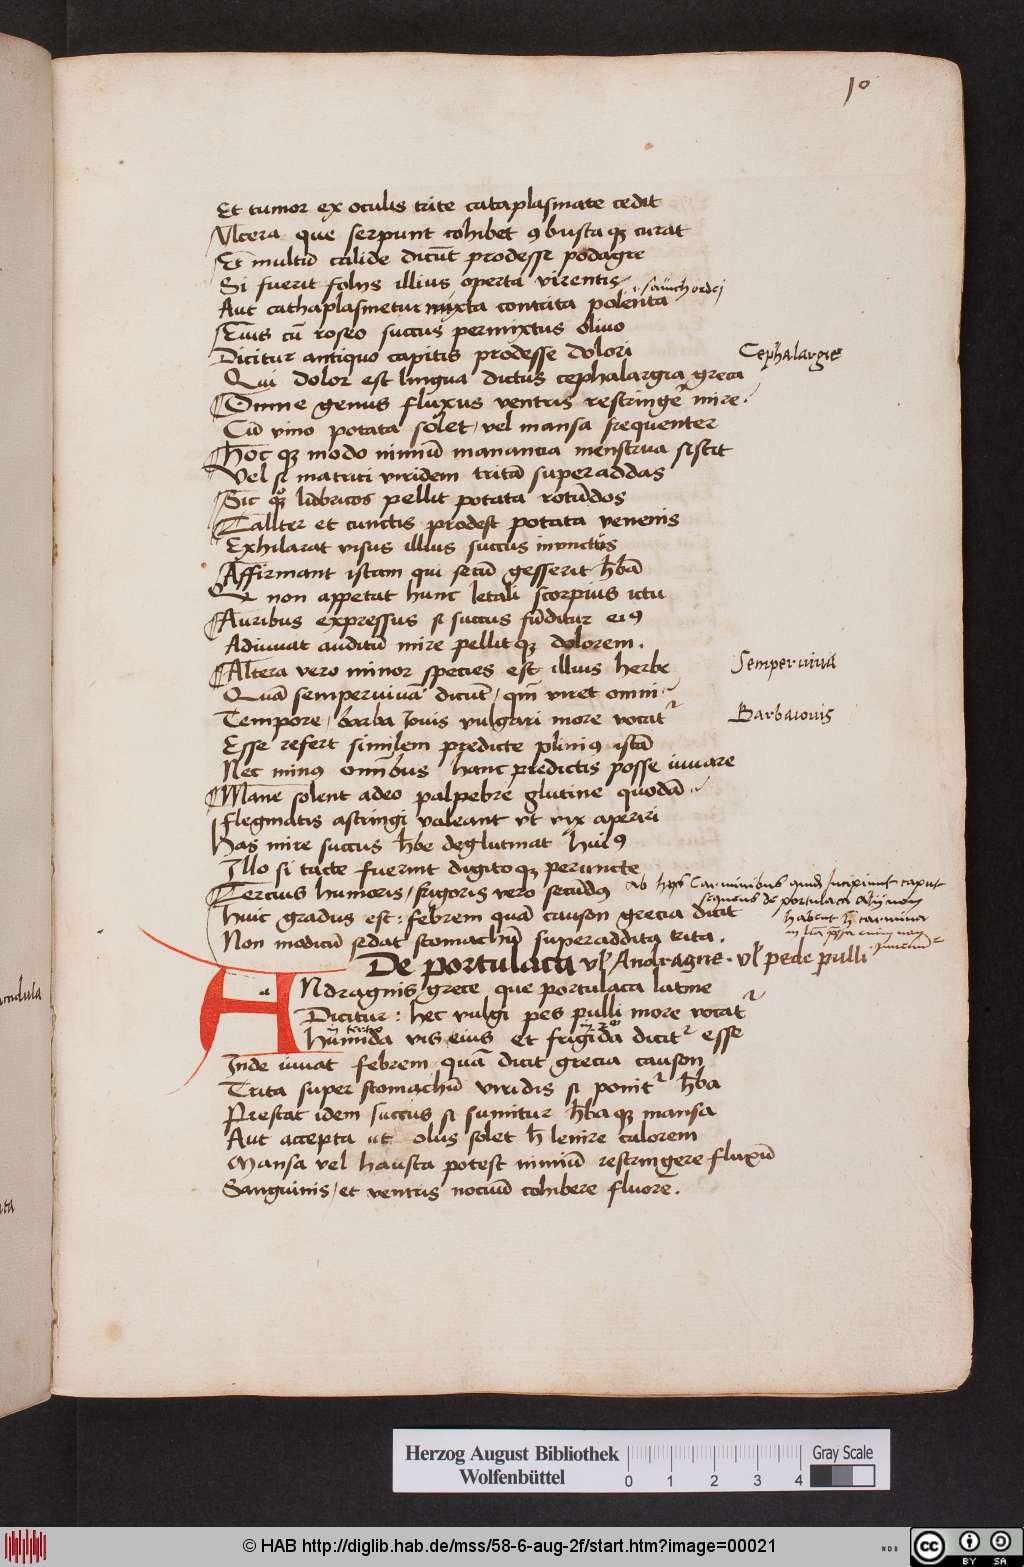 10
Et tumor ex oculis trite cataplasmate cedit
Vlcera que serpunt cohibet ꝯbustaqꝫ curat
Et multū calide dicūt prodesse podagre
Si fuerit foliis illius operta virentis
.i. ordei
Aut cathaplasmetur mixta contrita polenta
Eius cū roseo succus permixtus oliuo
Dicitur antiquo capitis prodesse dolori
Cephalargie
Qui dolor est lingua dictus cephalargia greca
Omne genus fluxus ventris restringeͬ mire.
Cū vino potata solet, vel mansa frequenter
Hoc qꝫ modo nimiū manancia menstrua sistit
Vel si matrici viridem tritā superaddas
Sic qꝫ lūbricos pellit potata rotūdos
Taliter et cunctis prodest potata venenis
Exhilarat visus illius succus inunctus
Affirmant istam qui secū gesserit h̄bā
Qͫ non appetat hunc letali scorpius ictu
Auribus expressus si succus fūditur eiꝰ
Adiuuat auditū mire pellitqꝫ dolorem.
Altera vero minor species est illius herbe
Semperuiua
Quā semperuiuā dicūt, qm̄ viret omni
Tempore, barba Iouis vulgari more vocatͬ
Barbaiouis
Esse refert similem predicte pliniꝰ istā
Nec minꝰ omībus hanc predictis posse iuuare
Mane solent adeo palpebre glutine quodā
Flegmatis astringi valeant vt vix aperiri
Has mire succus h̄be deglutinat huiꝰ
Illo si tacte fuerint digitoqꝫ peruncte
Tercius humoris, frigoris vero secūdꝰ
Ab hijs Carminibus quidā Incipiunt caput
sequens de portulaca Alij non
habent h carmina
Huic gradus est: febrem quā causon grecia dicit
Non modicū sedat stomachū superaddita trita.
De portulaca vl̄ Andragne. vl̄ pede pulli
ANdragnis grece que portulaca latine
Dicitur: hec vulgi pes pulli more vocatͬ
in tertio
Humida vis eius et frigida diciͬt esse
Inde iuuat febrem quā dicit grecia causon
Trita super stomachū viridis si ponitͬ h̄ba
Prestat idem succus si sumitur h̄baqꝫ mansa
Aut accepta ut olus solet h̄ lenire calorem
Mansa vel hausta potest nimiū restringere fluxū
Sanguinis, et ventris nociuū cohibere fluorē.
Herzog August Bibliothek
Wolfenbüttel
0 1 2 3 4
Gray Scale
© HAB http://diglib.hab.de/mss/58-6-aug-2f/start.htm?image=00021
cc BY SA